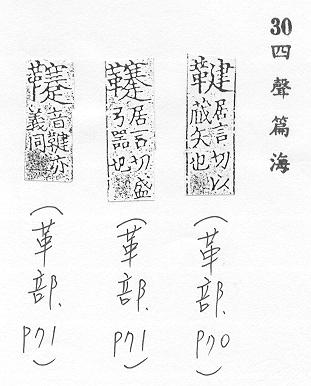 30四聲篇海
鞬居言切以
藏矢也
(革部.P70)
居言切盛
弓器也
(革部.P71)
音鞬亦
義同
(革部.P71)